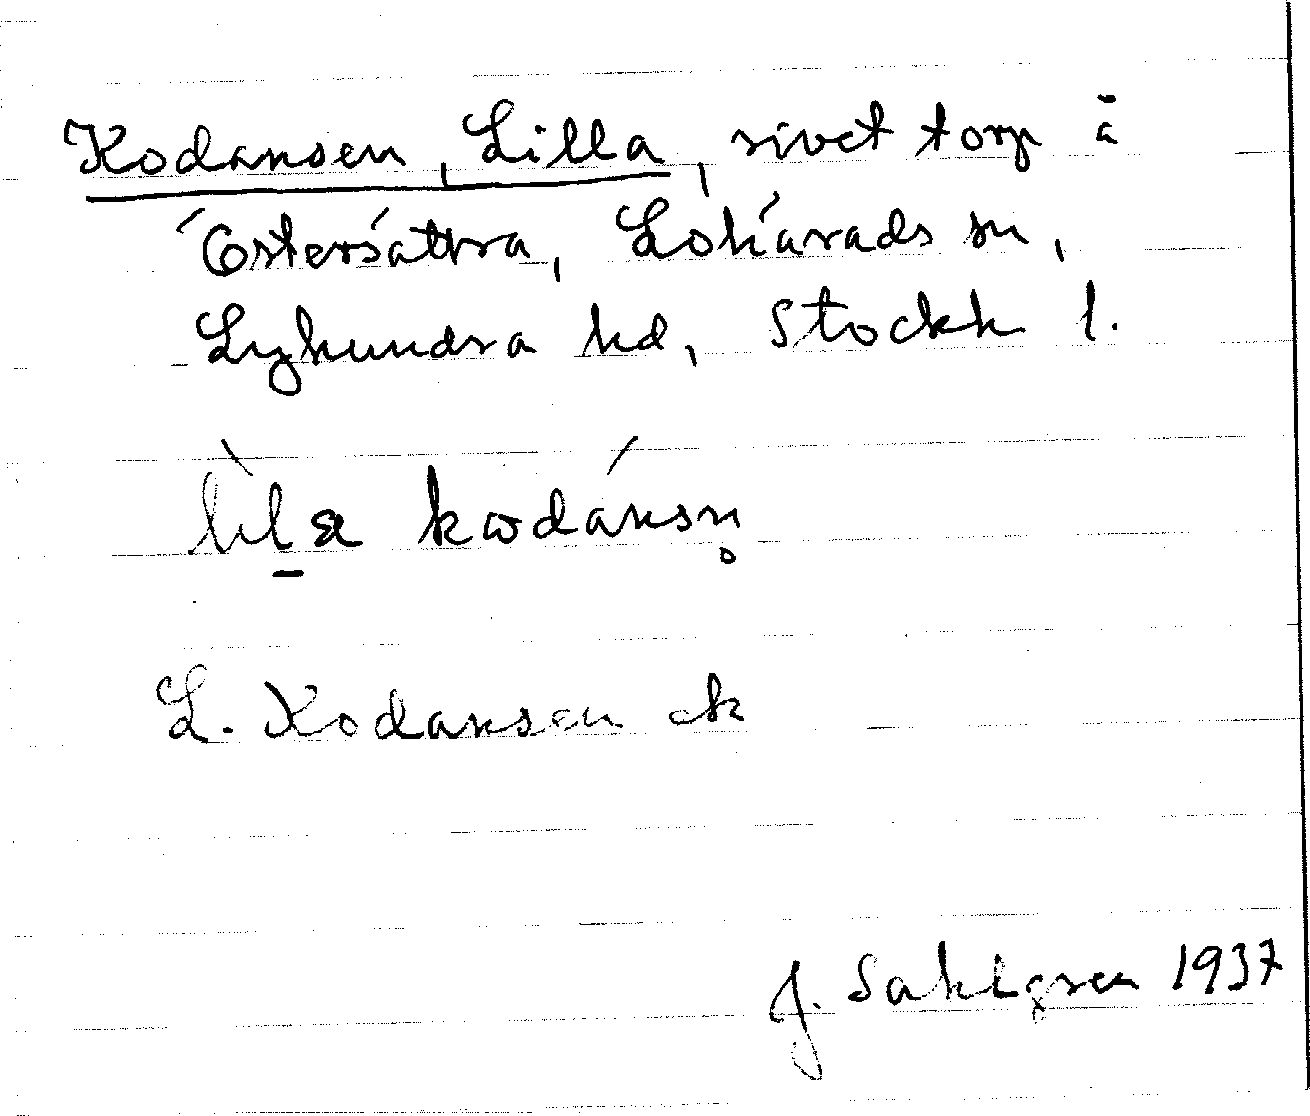 Kodansen, Lilla, rivet torp å
Östersättra, Lohärads sn,
Lyhundra hd, Stockh l.
lìl̠a kωdánsn̥
L. Kodansen ek
J. Sahlgren 1937